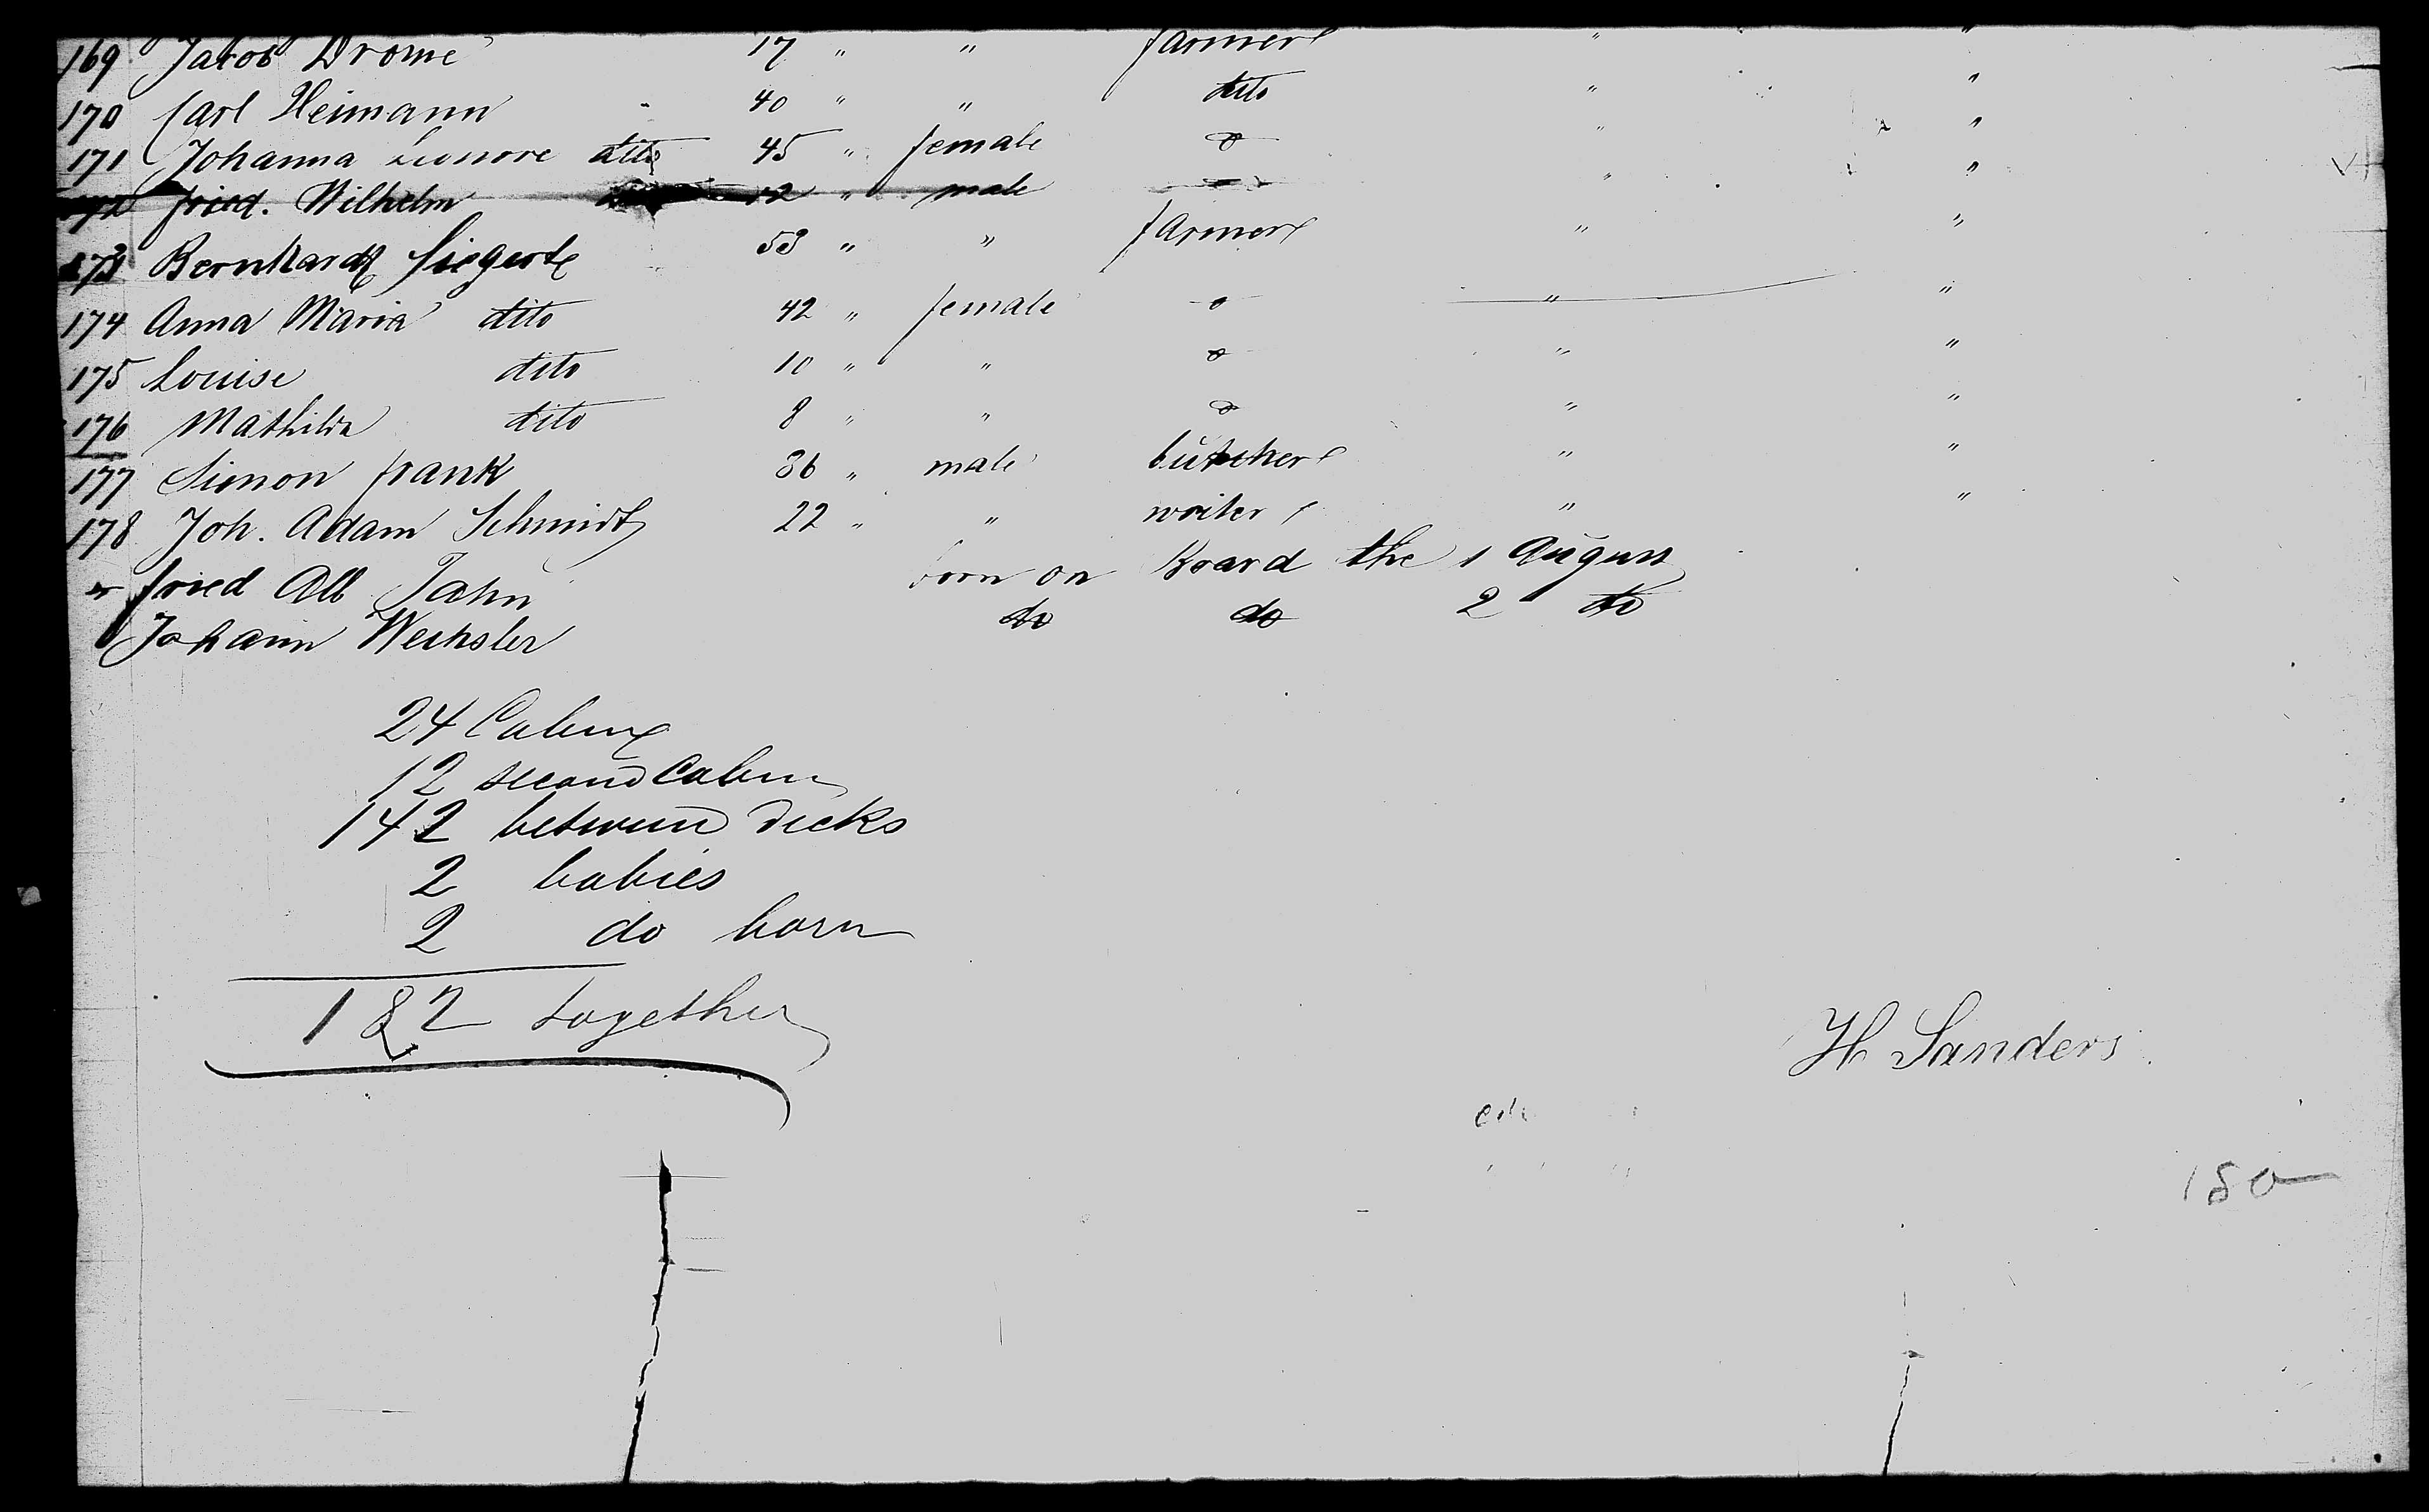 169 Jakob Drome 17 " " farmer " "
170 Carl Heimann 40 " " dito " "
171 Johanna Leonore dito 45 " female o " "
Fried. Wilhelm " male " "
173 Bernhard Siegert 53 " " farmer " "
174 Anna Maria dito 42 " female o " "
175 Louise dito 10 " " o " "
176 Mathilda dito 8 " " o " "
177 Simon Frank 36 " male butcher " "
178 Joh. Adam Schmidt 22 " " writer " "
Fried Alb Jahn born on Board the 1 August
Johann Wechsler do do 2 do
24 Cabin
12 second Cabin
142 between decks
2 babies
2 do born
182 together
H Sanders
180